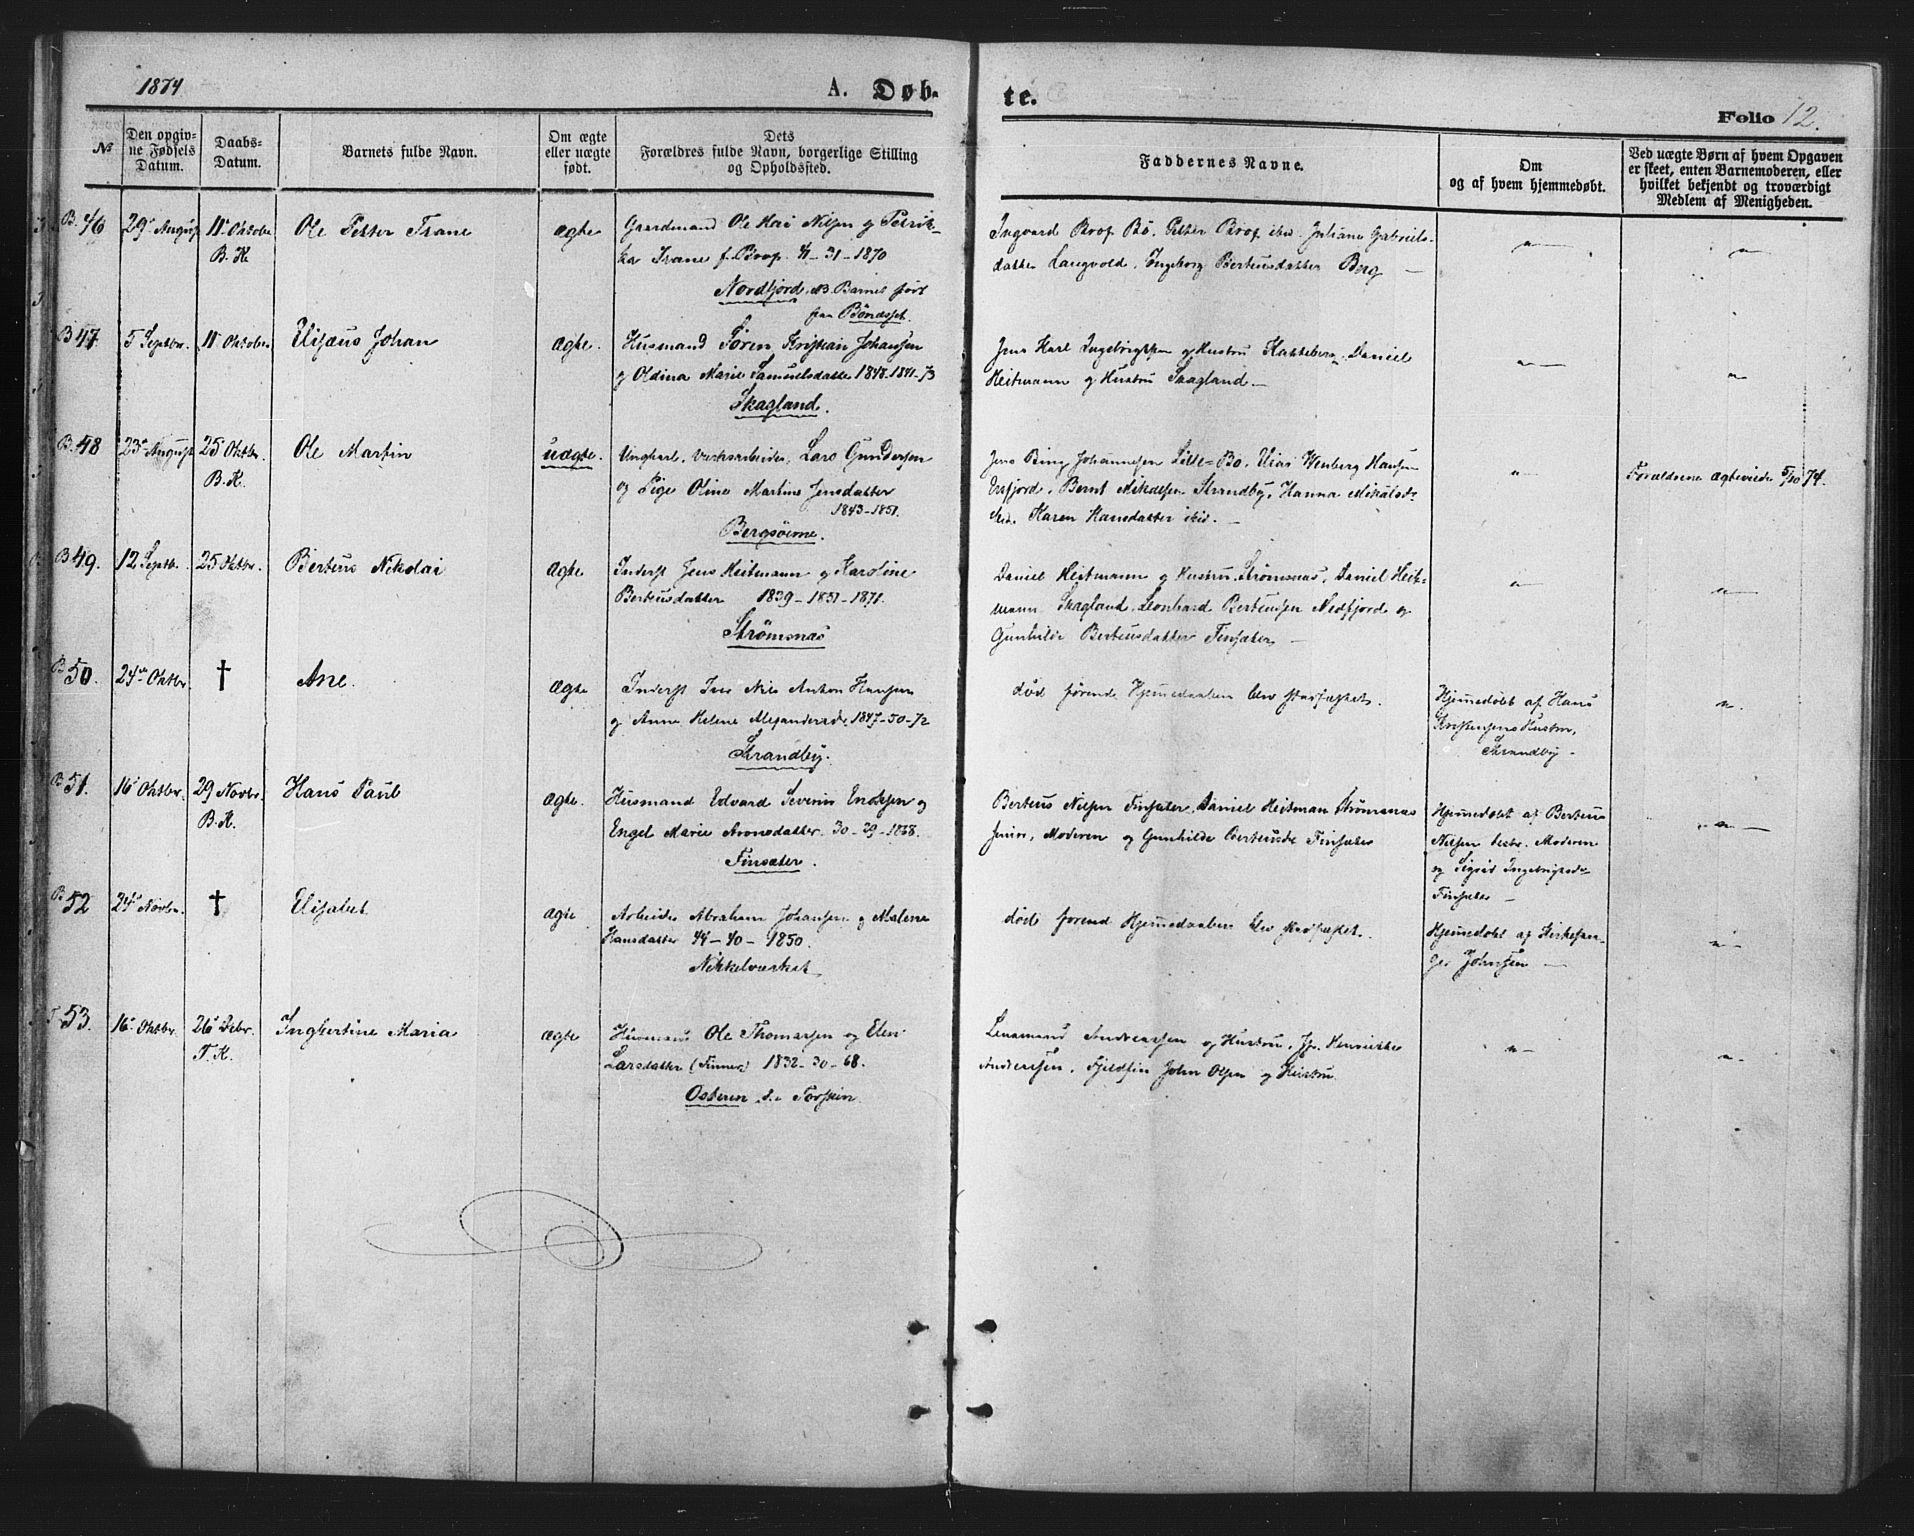 1874
A. Døb-
te.
Folio 12.
№
Den opgiv-
ne Fødsels
Datum.
Daabs-
Datum.
Barnets fulde Navn.
Om ægte
eller uægte
født.
Dets
Forældres fulde Navn, borgerlige Stilling
og Opholdssted.
Faddernes Navne.
Om
og af hvem hjemmedøbt.
Ved uægte Børn af hvem Opgaven
er skeet, enten Barnemoderen, eller
hvilket bekjendt og troværdigt
Medlem af Menigheden.
B. 46
29 August
11 Oktober
B. K.
Ole Petter Trane
ægte
Gaardmand Ole Kai Nilsen og Petrik-
ka Trane f. Brox 41-31-1870
Nordfjord. NB Barnet født
paa Bondsset.
Ingvard Brox Bö. Petter Brox ibid. Juliane Gabriels-
datter Langvold. Ingeborg Berteusdatter Berg
B 47.
5 Septbr.
11 Oktober
Elisæus Johan
ægte.
Husmand Sören Kristian Johansen
og Oldina Marie Samuelsdatter 1848-1841-73
Skagland.
Jens Karl Ingebrigtsen og Hustru Kasseberg. Daniel
Heitmann og Hustru Skagland.
B. 48
23 August
25 Oktbr.
B. K.
Ole Martin
uægte.
Ungkarl, Værksarbeider, Lars Gundersen
og Pige Oline Martine Jensdatter
1843-1851.
Bergsöerne.
Jens Bing Johannesen Lille-Bö, Elias Wenberg Hansen
Ersfjord. Bernt Mikalsen Strandby, Hanna Mikalsd.
ibid. Karen Hansdatter ibid.
Forældrene ægteviede 5/10 74.
B 49.
12 Septb.
25 Oktbr.
Berteus Nikolai
ægte
Inderst Jens Heitmann og Karoline
Berteusdatter 1839-1851-1871.
Strömsnæs
Daniel Heitmann og Hustru Strömsnæs. Daniel Heit-
mann Skagland. Leonhard Berteussen Nedfjord og
Gunhilde Berteusdatter Finsæter
B 50.
24de Oktbr.
†
Ane.
ægte
Inderst Nils Anton Hansen
og Anne Helene Alexandersd. 1847-50-72
Strandby.
død førende Hjemmedaaben blev stadfæstet.
Hjemmedøbt af Hans
Kristensens Hustru,
Strandby
B 51.
16 Oktbr.
29 Novbr.
B. K.
Hans Paul
ægte.
Husmand Edvard Severin Enoksen og
Engel Marie Aronsdatter. 30-29-1868.
Finsæter.
Berteus Nilsen Finsæter, Daniel Heitman Strömsnæs
junior, Moderen og Gunhilde Berteusdr. Finsæter
Hjemmedøbt af Berteus
Nilsen bestr. Moderen
og Sigrid Ingebrigtsdr.
Finsæter
B 52
24 Novbr.
†
Elisabet
ægte
Arbeider Abraham Johansen og Malene
Hansdatter 44-40-1850.
Nikkelværket
døde forend Hjemmedaaben blev stadfæstet.
Hjemmedøbt af Kirkesan-
ger Johnsen
T. 53.
16 Oktbr.
26 Debr.
T. K.
Ingbertine Maria
ægte
Husmand Ole Thomassen og Elen
Larsdatter (Finner) 1832-30-68.
Osteren Torskin.
Lensmand Andreassen og Hustru, Henrikke
Andreassen, Fjeldfin John Olsen og Hustru